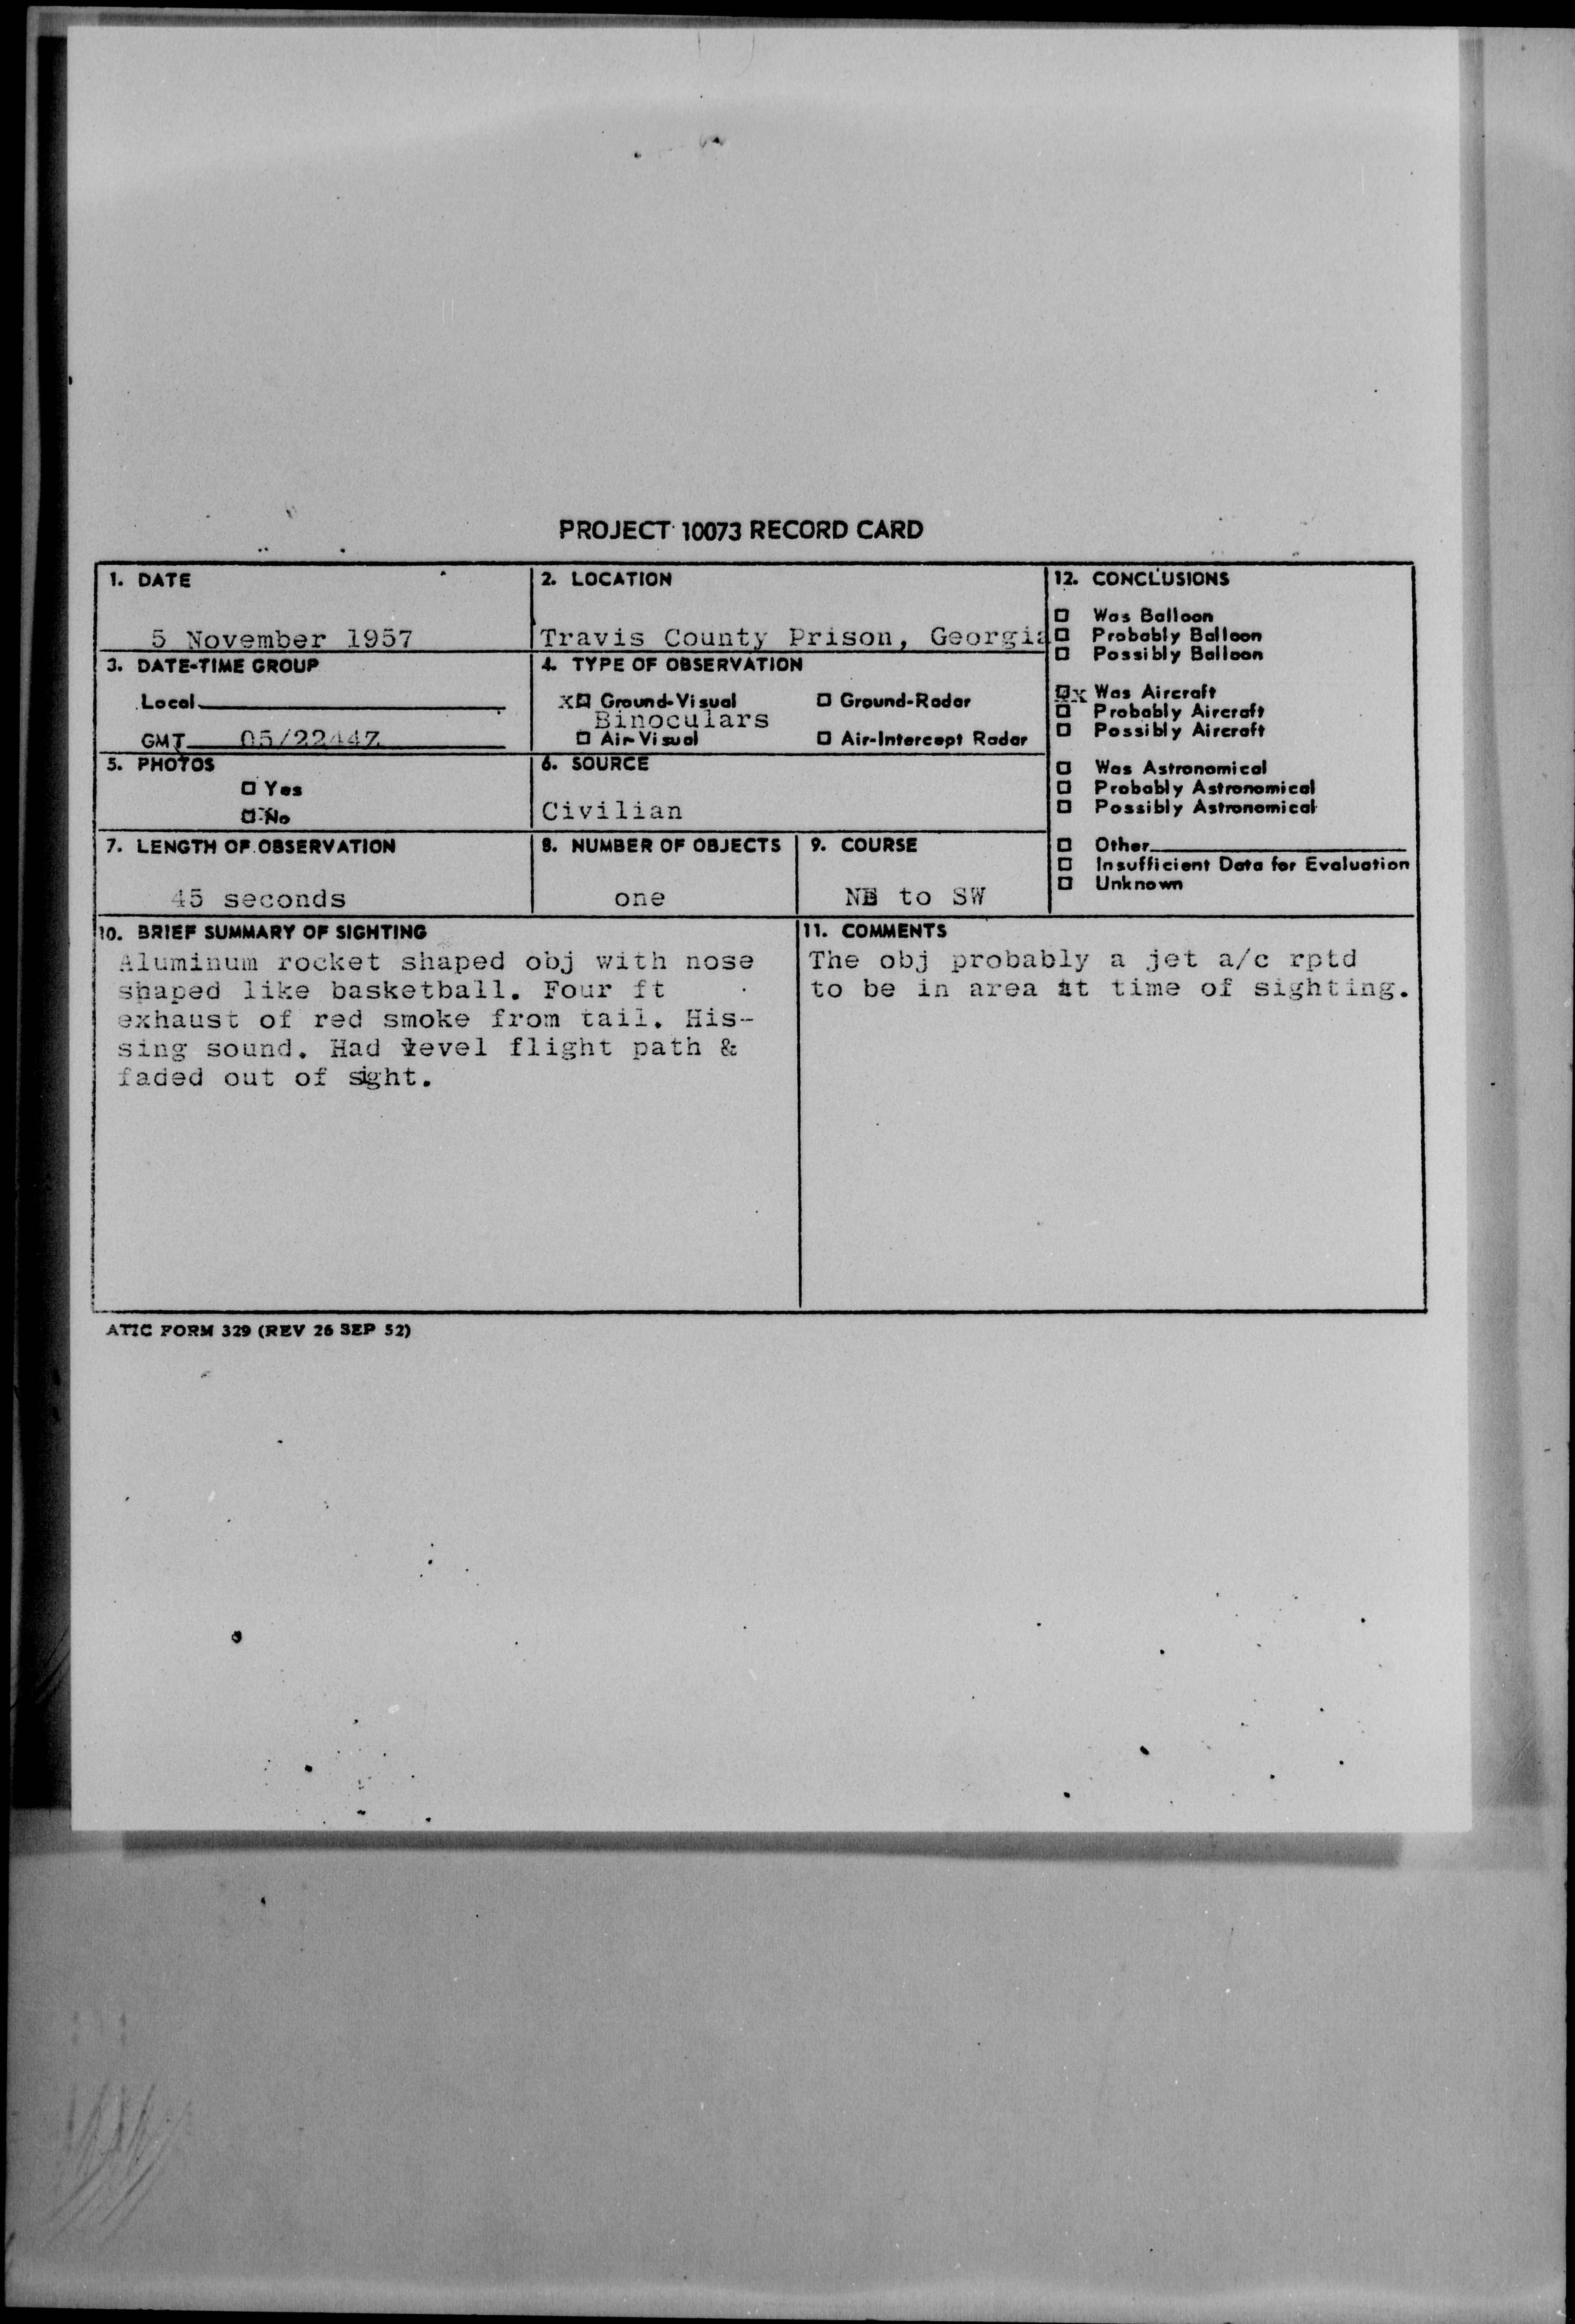 PROJECT 10073 RECORD CARD
1. DATE
5 November 1957
2. LOCATION
Travis County Prison, Georgia
3. DATE-TIME GROUP
Local
GMT 05/2244Z
4. TYPE OF OBSERVATION
X Ground-Visual
Binoculars
Air-Visual
Ground-Radar
Air-Intercept Radar
5. PHOTOS
Yes
X No
6. SOURCE
Civilian
7. LENGTH OF OBSERVATION
45 seconds
8. NUMBER OF OBJECTS
one
9. COURSE
NE to SW
12. CONCLUSIONS
Was Balloon
Probably Balloon
Possibly Balloon
xx Was Aircraft
Probably Aircraft
Possibly Aircraft
Was Astronomical
Probably Astronomical
Possibly Astronomical
Other
Insufficient Data for Evaluation
Unknown
10. BRIEF SUMMARY OF SIGHTING
Aluminum rocket shaped obj with nose
shaped like basketball. Four ft
exhaust of red smoke from tail. His-
sing sound. Had level flight path &
faded out of sight.
11. COMMENTS
The obj probably a jet a/c rptd
to be in area at time of sighting.
ATIC FORM 329 (REV 26 SEP 52)